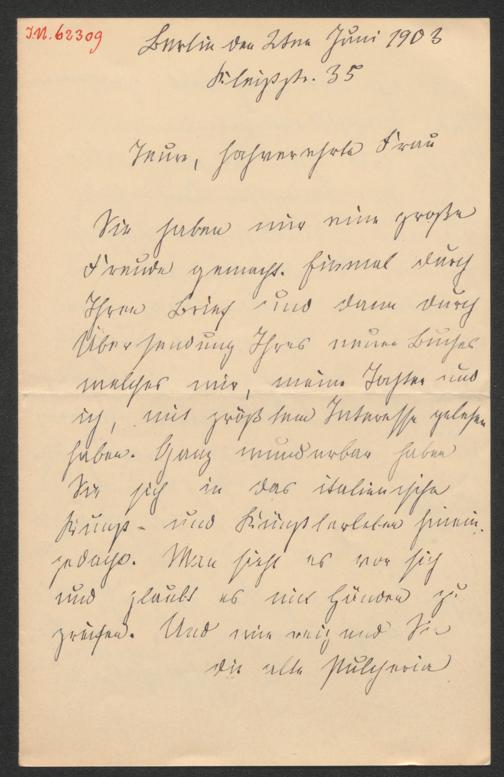 I.N. 62309
Berlin den 2ten Juni 1903
Kleiststr. 35
Teure, hochverehrte Frau
Sie haben mir eine große
Freude gemacht. Einmal durch
Ihren Brief und dann durch
Übersendung Ihres neuen Buches
welches wir, meine Tochter und
ich, mit größtem Interesse gelesen
haben. Ganz wunderbar haben
Sie sich in das italienische
Kunst- und Künstlerleben hinein-
gedacht. Man sieht es vor sich
und glaubt es mit Händen zu
greifen. Und wie reizend Sie
die alte Pulcheria